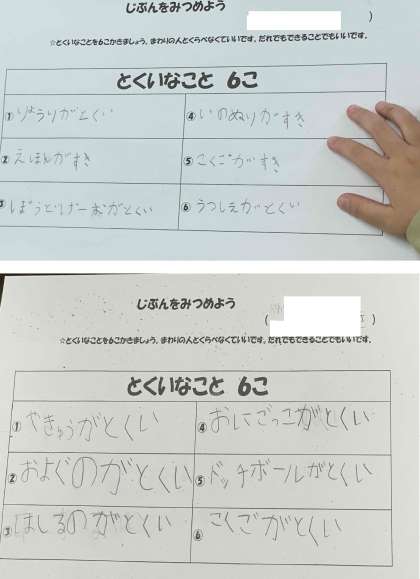 じぶんをみつめよう
)
☆とくいなことを6こかきましょう。まわりの人とくらべなくていいです。だれでもできることでもいいです。
とくいなこと 6こ
①りょうりがとくい
④いのぬりがすき
②えほんがすき
⑤こくごがすき
ぼうどげーむがとくい
⑥うつしえがとくい
じぶんをみつめよう
( )
☆とくいなことを6こかきましょう。まわりの人とくらべなくていいです。だれでもできることでもいいです。
とくいなこと 6こ
①やきゅうがとくい
④おにごっこがとくい
②およぐのがとくい
⑤ドッチボールがとくい
③はしるのがとくい
⑥こくごがとくい